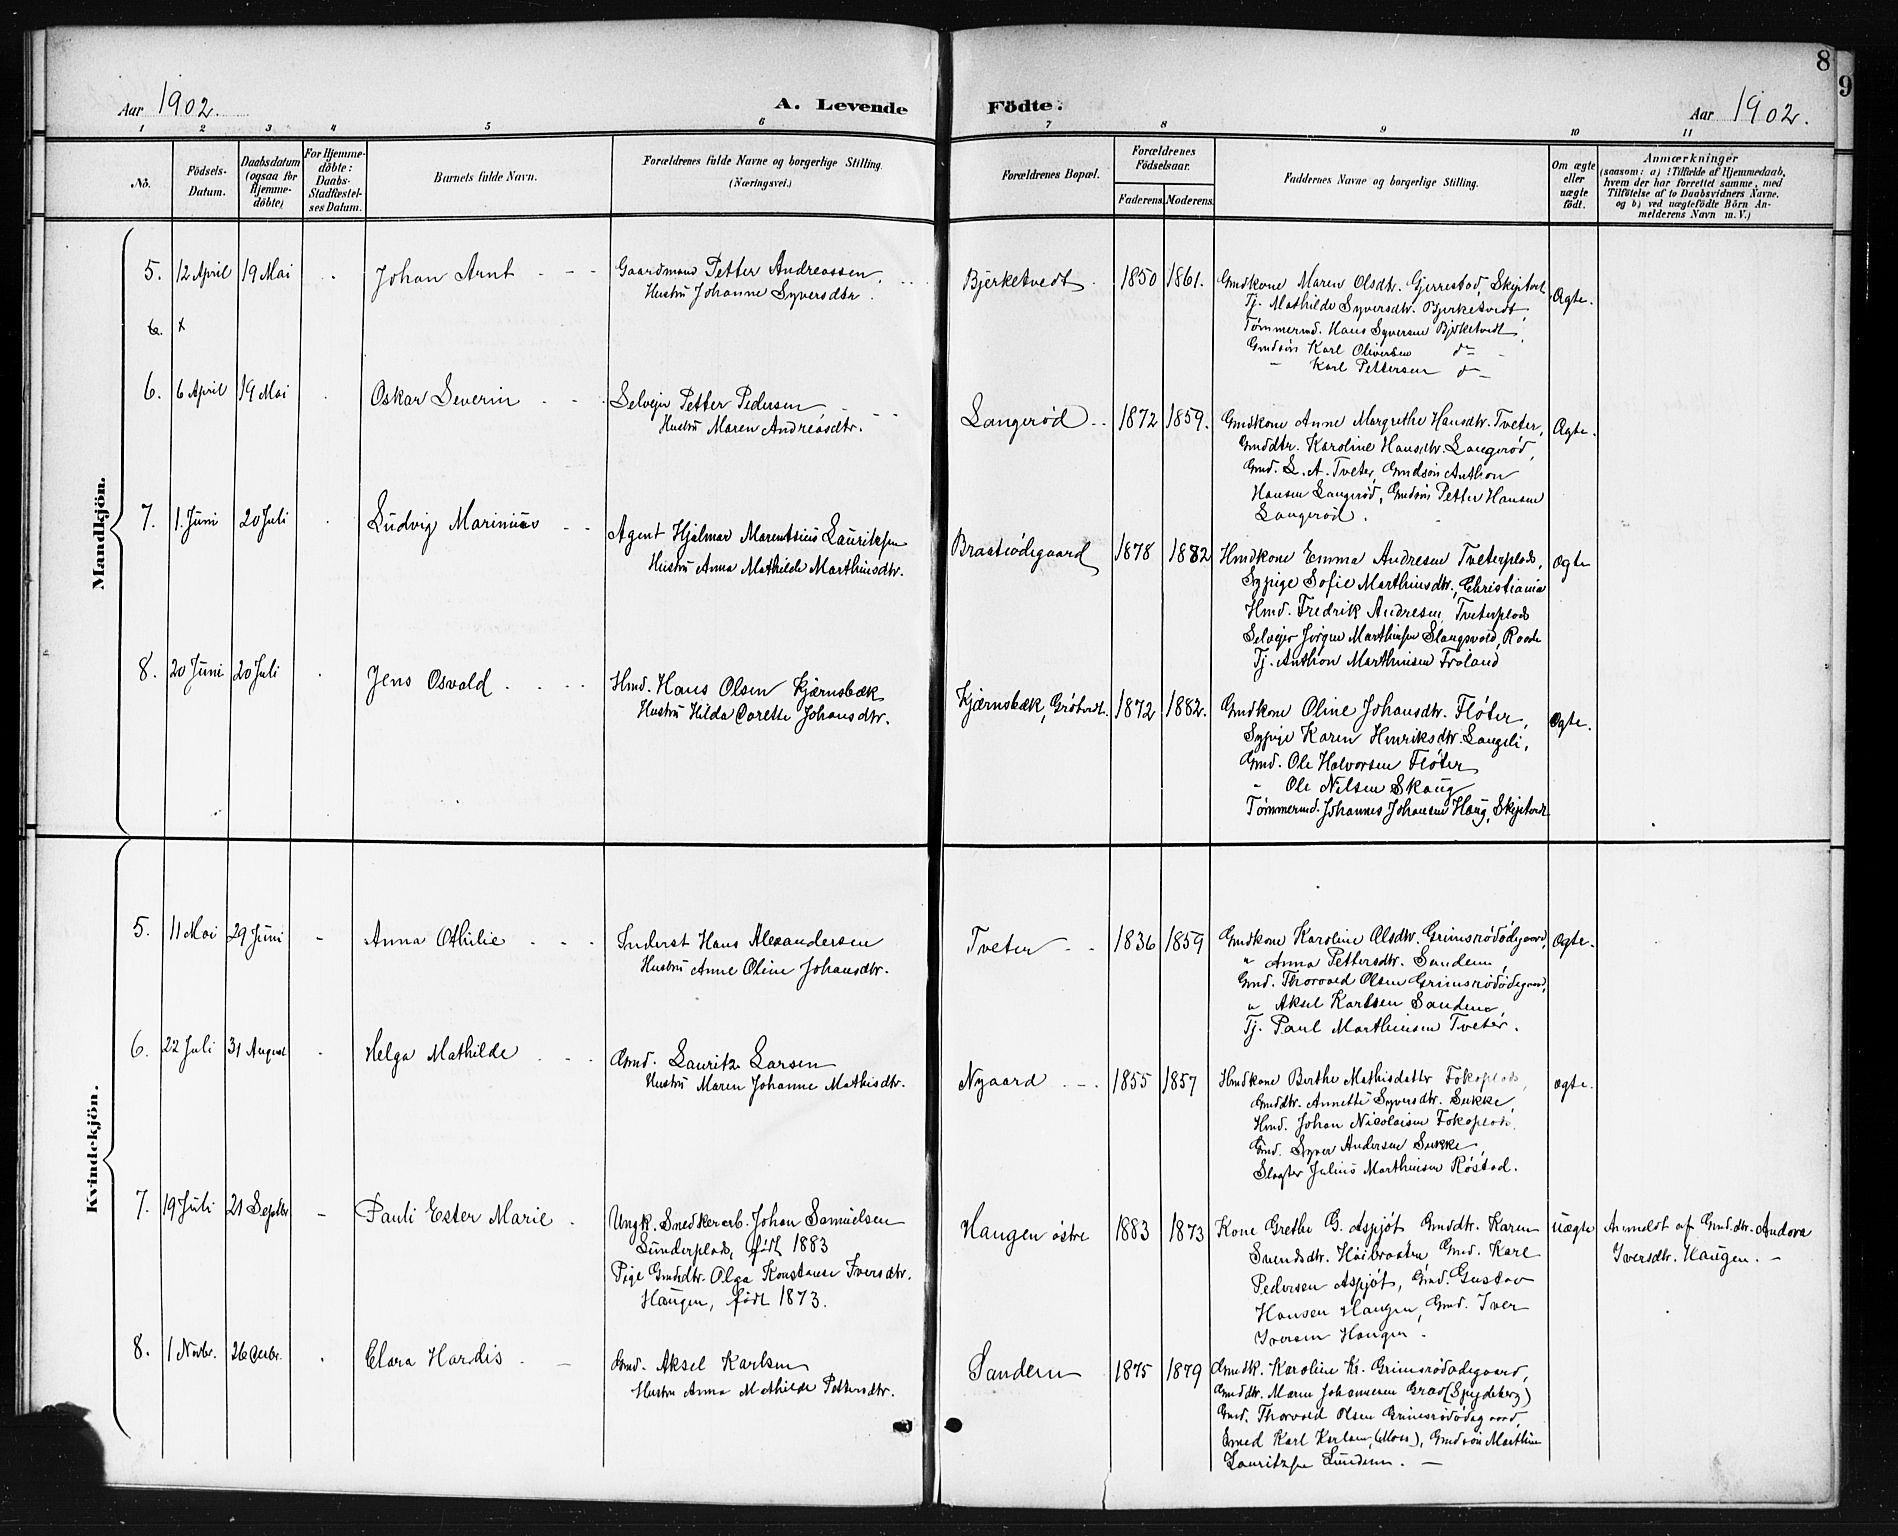 8
9
Aar 1902.
A. Levende
Födte.
Aar 1902.
1 2 3 4 5 6 7 8 9 10 11
No.
Födsels-
Datum.
Daabsdatum
(ogsaa for
Hjemme-
döbte)
For Hjemme-
döbte:
Daabs-
Stadfæstel-
ses Datum.
Barnets fulde Navn.
Forældrenes fulde Navne og borgerlige Stilling
(Næringsvei.)
Forældrenes Bopæl.
Forældrenes
Födselsaar.
Faderens Moderens
Faddernes Navne og borgerlige Stilling.
Om ægte
eller
uægte
födt.
Anmærkninger
(saasom: a) i Tilfælde af Hjemmedaab,
hvem der har forrettet samme, med
Tilföielse af to Daabsvidners Navne.
og b) ved uægtefödte Börn An-
melderens Navn m. V.)
Mandkjön.
5. 12 April 19 Mai Johan Arnt
Gaardmand Petter Andreassen
Hustru Johanne Syversdtr.
Bjerketvedt 1850 1861.
Gmdkone Maren Olsdtr. Gjerrestad, Skjptvet
Tj. Mathilde Syversdtr. Bjerketvedt,
Tømmermd. Hans Syversen Bjerketvedt,
Gmdsøn Karl Oliversen do
" Karl Pettersen do
Ægte.
6. x
6. 6 April 19 Mai Oskar Severin
Selveier Petter Pedersen
Hustru Maren Andreasdtr.
Langerød 1872 1859.
Gmdkone Anne Margrethe Hansdtr. Tveter,
Gmddtr. Karoline Hansdtr. Langerød,
Gmd. L. A. Tveter, Gmdsøn Anthon
Hansen Langerød, Gmdsøn Petter Hansen
Langerød.
Ægte.
7. 1. Juni 20 Juli Ludvig Marinius
Agent Hjalmar Marentsius Lauritzsen
Hustru Anna Mathilde Marthinsdtr.
Braatrødegaard 1878 1882
Hmdkone Emma Andresen Tveterplads,
Sypige Sofie Marthinsdtr., Christiania
Hmd. Fredrik Andresen, Tveterplads
Selveier Jørgen Marthinsen Slangsvold, Raade
Tj. Anthon Marthinsen Froland
Ægte
8. 20 Juni 20 Juli Jens Osvald
Hmd. Hans Olsen Kjærnsbæk
Hustru Hilda Carette Johansdtr.
Kjærnsbæk, Grøtvedt. 1872 1882.
Gmdkone Oline Johansdtr. Fløter,
Sypige Karen Henriksdtr. Langeli,
Gmd. Ole Halvorsen Fløter
" Ole Nilsen Skaug
Tømmermd. Johannes Johansen Haug, Skjptvedt
Ægte.
Kvindekjön.
5. 11 Mai 29 Juni Anna Othilie
Inderst Hans Alexandersen
Hustru Anne Oline Johansdtr.
Tveter 1836 1859
Gmdkone Karoline Olsdtr. Grimsrødødegaard,
" Anna Pettersdtr. Sandem,
Gmd. Thorvald Olsen Grimsrødødegaard,
" Aksel Karlsen Sandem,
Tj. Paul Marthinsen Tveter.
Ægte.
6. 22 Juli 31 August Helga Mathilde
Gmd. Lauritz Larsen
Hustru Maren Johanne Mathisdtr.
Nygaard 1855 1857
Hmdkone Berthe Mathisdatter Fokoplads,
Gmddtr. Annette Syversdtr. Sukke,
Hmd. Johan Nicolaisen Fokoplads.
Gmd. Syver Andersen Sukke,
Slagter Julius Marthinsen Røstad.
ægte.
7. 19 Juli 21 Septbr Pauli Ester Marie
Ungk. Snedkerarb. Johan Samuelsen
Sunderplads, født 1883
Pige Gmddtr. Olga Konstanse Iversdtr.
Haugen, født 1873.
Haugen østre 1883 1873
Kone Grethe G. Aspjøt Gmddtr. Karen
Svendsdtr. Høibraaten Gmd. Karl
Pedersen Aspjøt, Gmd. Gustav
Hansen Haugen, Gmd. Iver
Iversen Haugen.
Uægte
Anmeldt af Gmd.dtr. Andora
Iversdtr. Haugen.
8. 1 Novbr. 26 Decbr. Clara Hardis
Gmd. Aksel Karlsen
Hustru Anna Mathilde Pettersdtr.
Sandem 1875 1879
Gmdk. Karoline Kr. Grimsrødødegaard,
Gmddtr. Maren Johannesen Graa (Spydeberg)
Gmd. Thorvald Olsen Grimsrødødegaard,
Smed Karl Karlsen, (Moss), Gmdsøn Marthin
Lauritzsen Sundem.